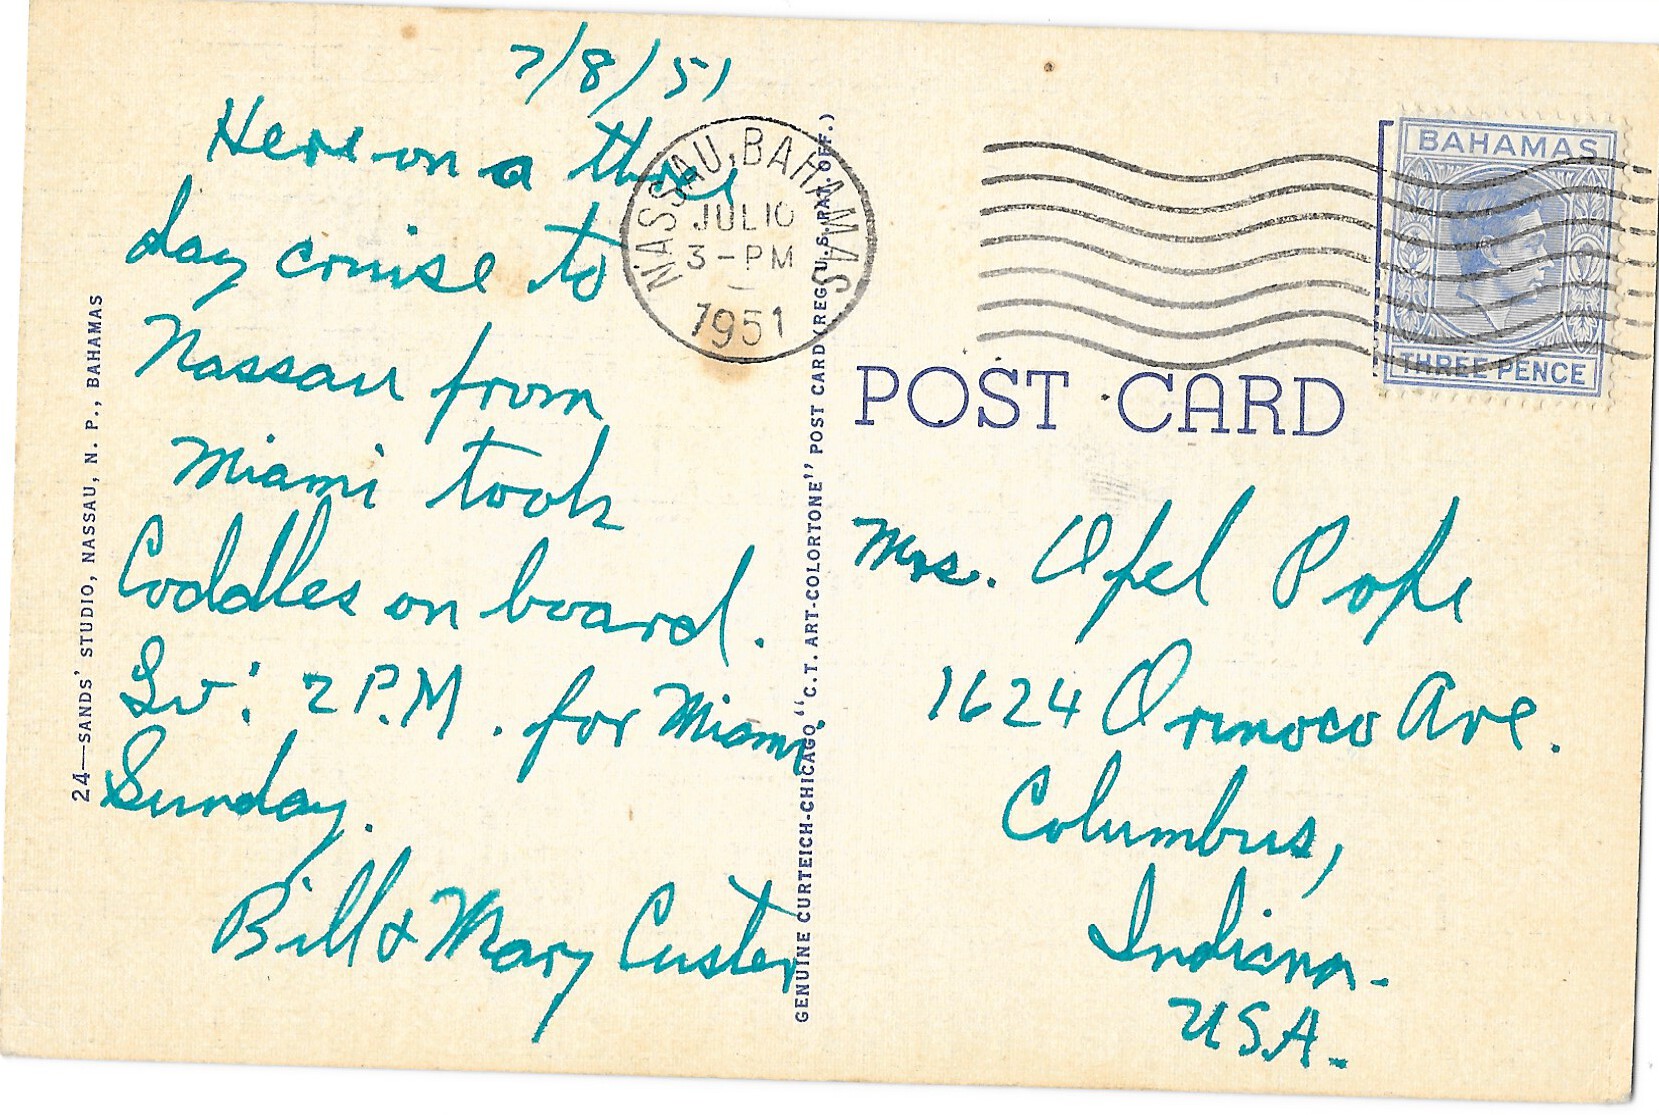 7/8/51
Here on a three
day cruise to
Nassau from
Miami took
Coddles on board.
Lv: 2 P.M. for Miami
Sunday.
Bill & Mary Custer
24—SANDS' STUDIO, NASSAU, N. P., BAHAMAS
GENUINE CURTEICH-CHICAGO "C.T. ART-COLORTONE" POST CARD (REG. U.S. PAT. OFF.)
NASSAU, BAHAMAS
JUL 10
3-PM
1951
BAHAMAS
THREE PENCE
POST CARD
Mrs. Opel Pope
1624 Orinoco Ave.
Columbus,
Indiana.
USA.